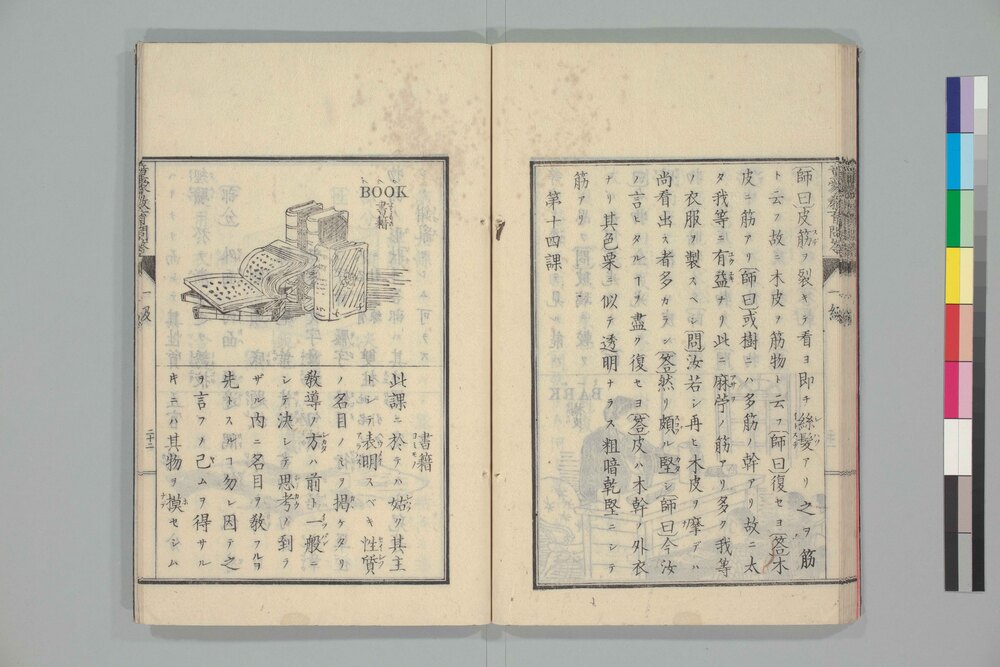 師曰皮筋ヲ裂キテ看ヨ即チ絲髪アリ之ヲ筋
ト云フ故ニ木皮ヲ筋物ト云フ師曰復セヨ答木
皮ニ筋アリ師曰或樹ニハ多筋ノ幹アリ故ニ太
タ我等ニ有益ナリ此ニ麻苧ノ筋アリ多ク我等
ノ衣服ヲ製スベシ問汝若シ再ヒ木皮ヲ摩デハ
尚看出ス者多カラン答然リ頗ル堅シ師曰今汝
ノ言ヒタルヿヲ盡ク復セヨ答皮ハ木幹ノ外衣
ナリ其色栗ニ似テ透明ナラス粗暗乾堅ニシテ
筋アリ
第十四課
BOOK
書籍
書籍
此課ニ於テハ姑ク其主
トシテ表明スベキ性質
ノ名目ノミヲ掲ケタリ
教導ノ方ハ前ト一般ニ
シテ決シテ思考ノ到ラ
ザル内ニ名目ヲ教フルヿヲ
先トスルヿ勿レ因テ之
ヲ言フノ已ムヲ得サル
キニハ其物ヲ摸セシム